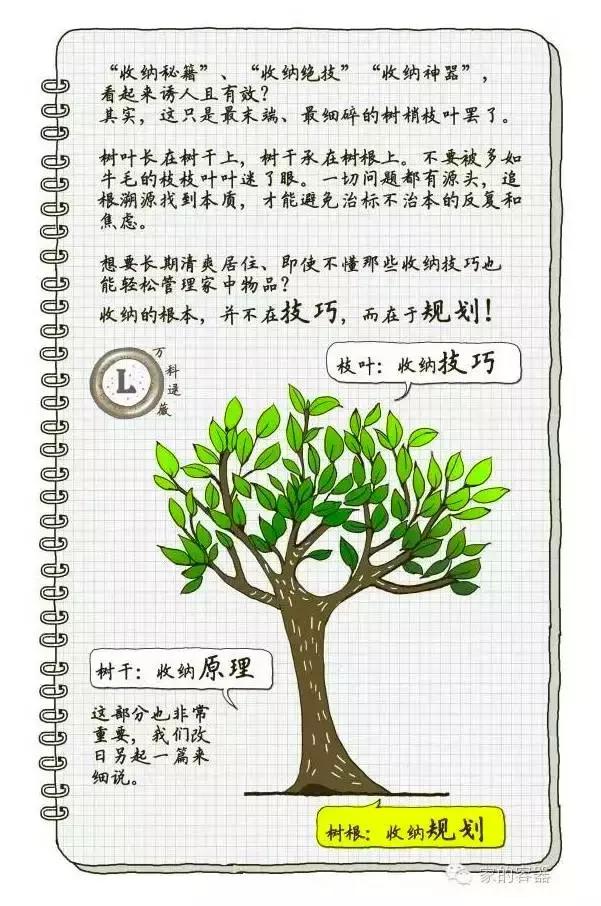 “收纳秘籍”、“收纳绝技”“收纳神器”，
看起来诱人且有效？
其实，这只是最末端、最细碎的树梢枝叶罢了。
树叶长在树干上，树干承在树根上。不要被多如
牛毛的枝枝叶叶迷了眼。一切问题都有源头，追
根溯源找到本质，才能避免治标不治本的反复和
焦虑。
想要长期清爽居住、即使不懂那些收纳技巧也
能轻松管理家中物品？
收纳的根本，并不在技巧，而在于规划！
枝叶：收纳技巧
L
万科逯薇
树干：收纳原理
这部分也非常
重要，我们改
日另起一篇来
细说。
树根：收纳规划
家的容器